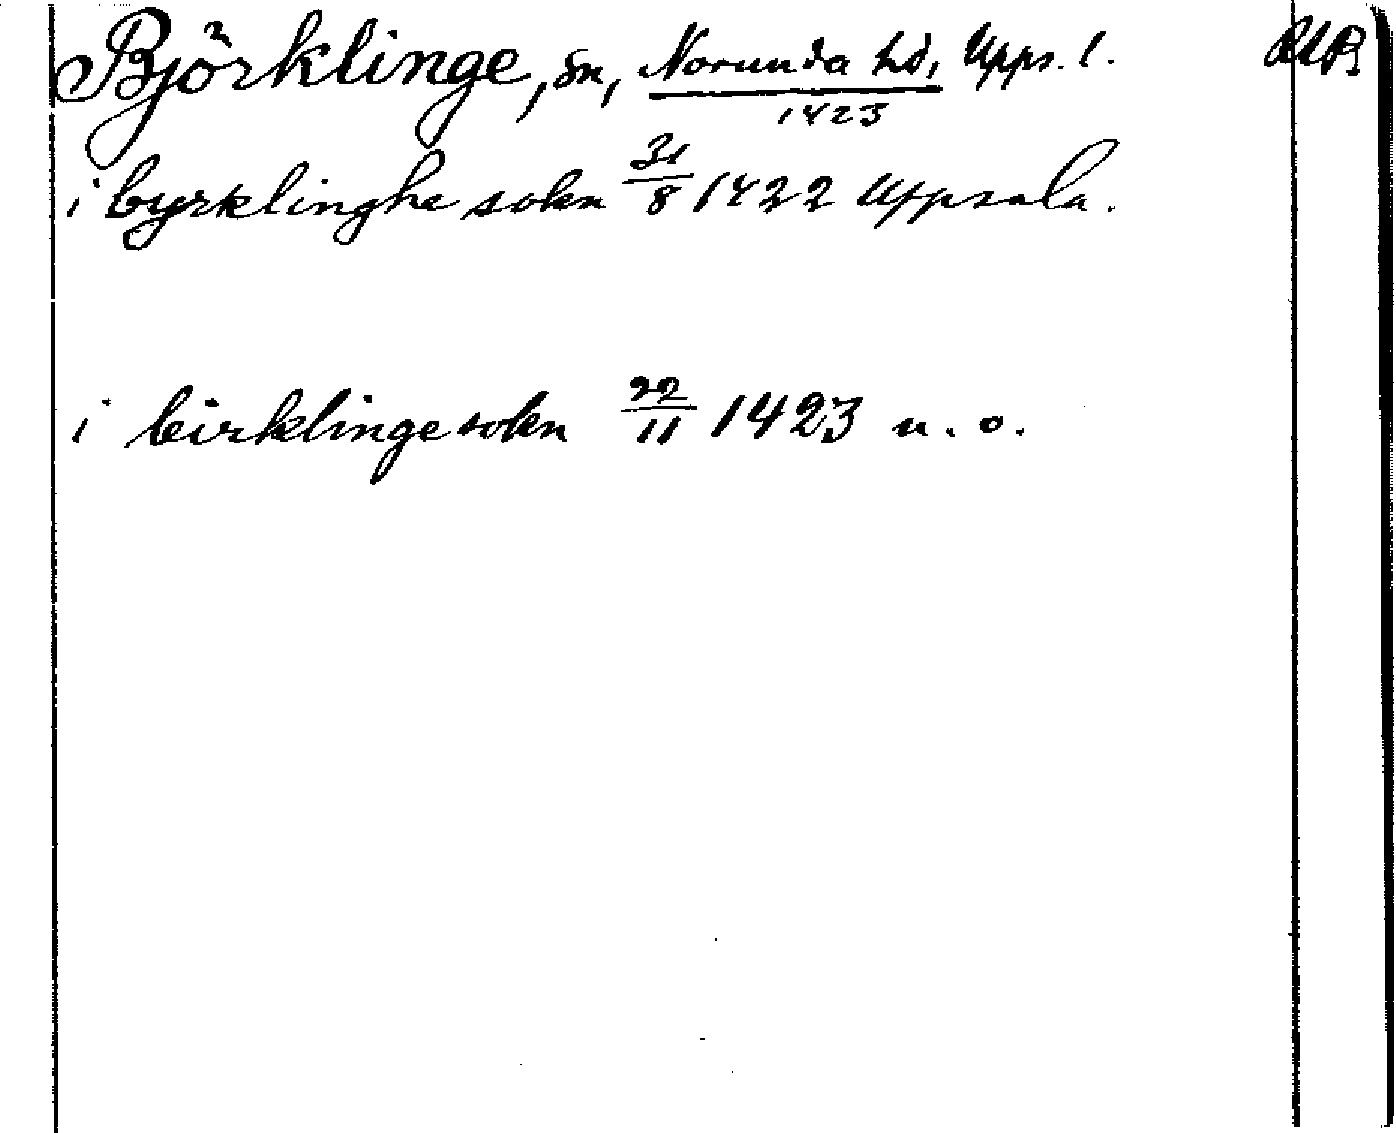 Björklinge, sn, Norunda hd, Upps. l.
1423
i byrklinghe sokn 31/8 1422 Uppsala.
i birklinge sokn 22/11 1423 u. o.